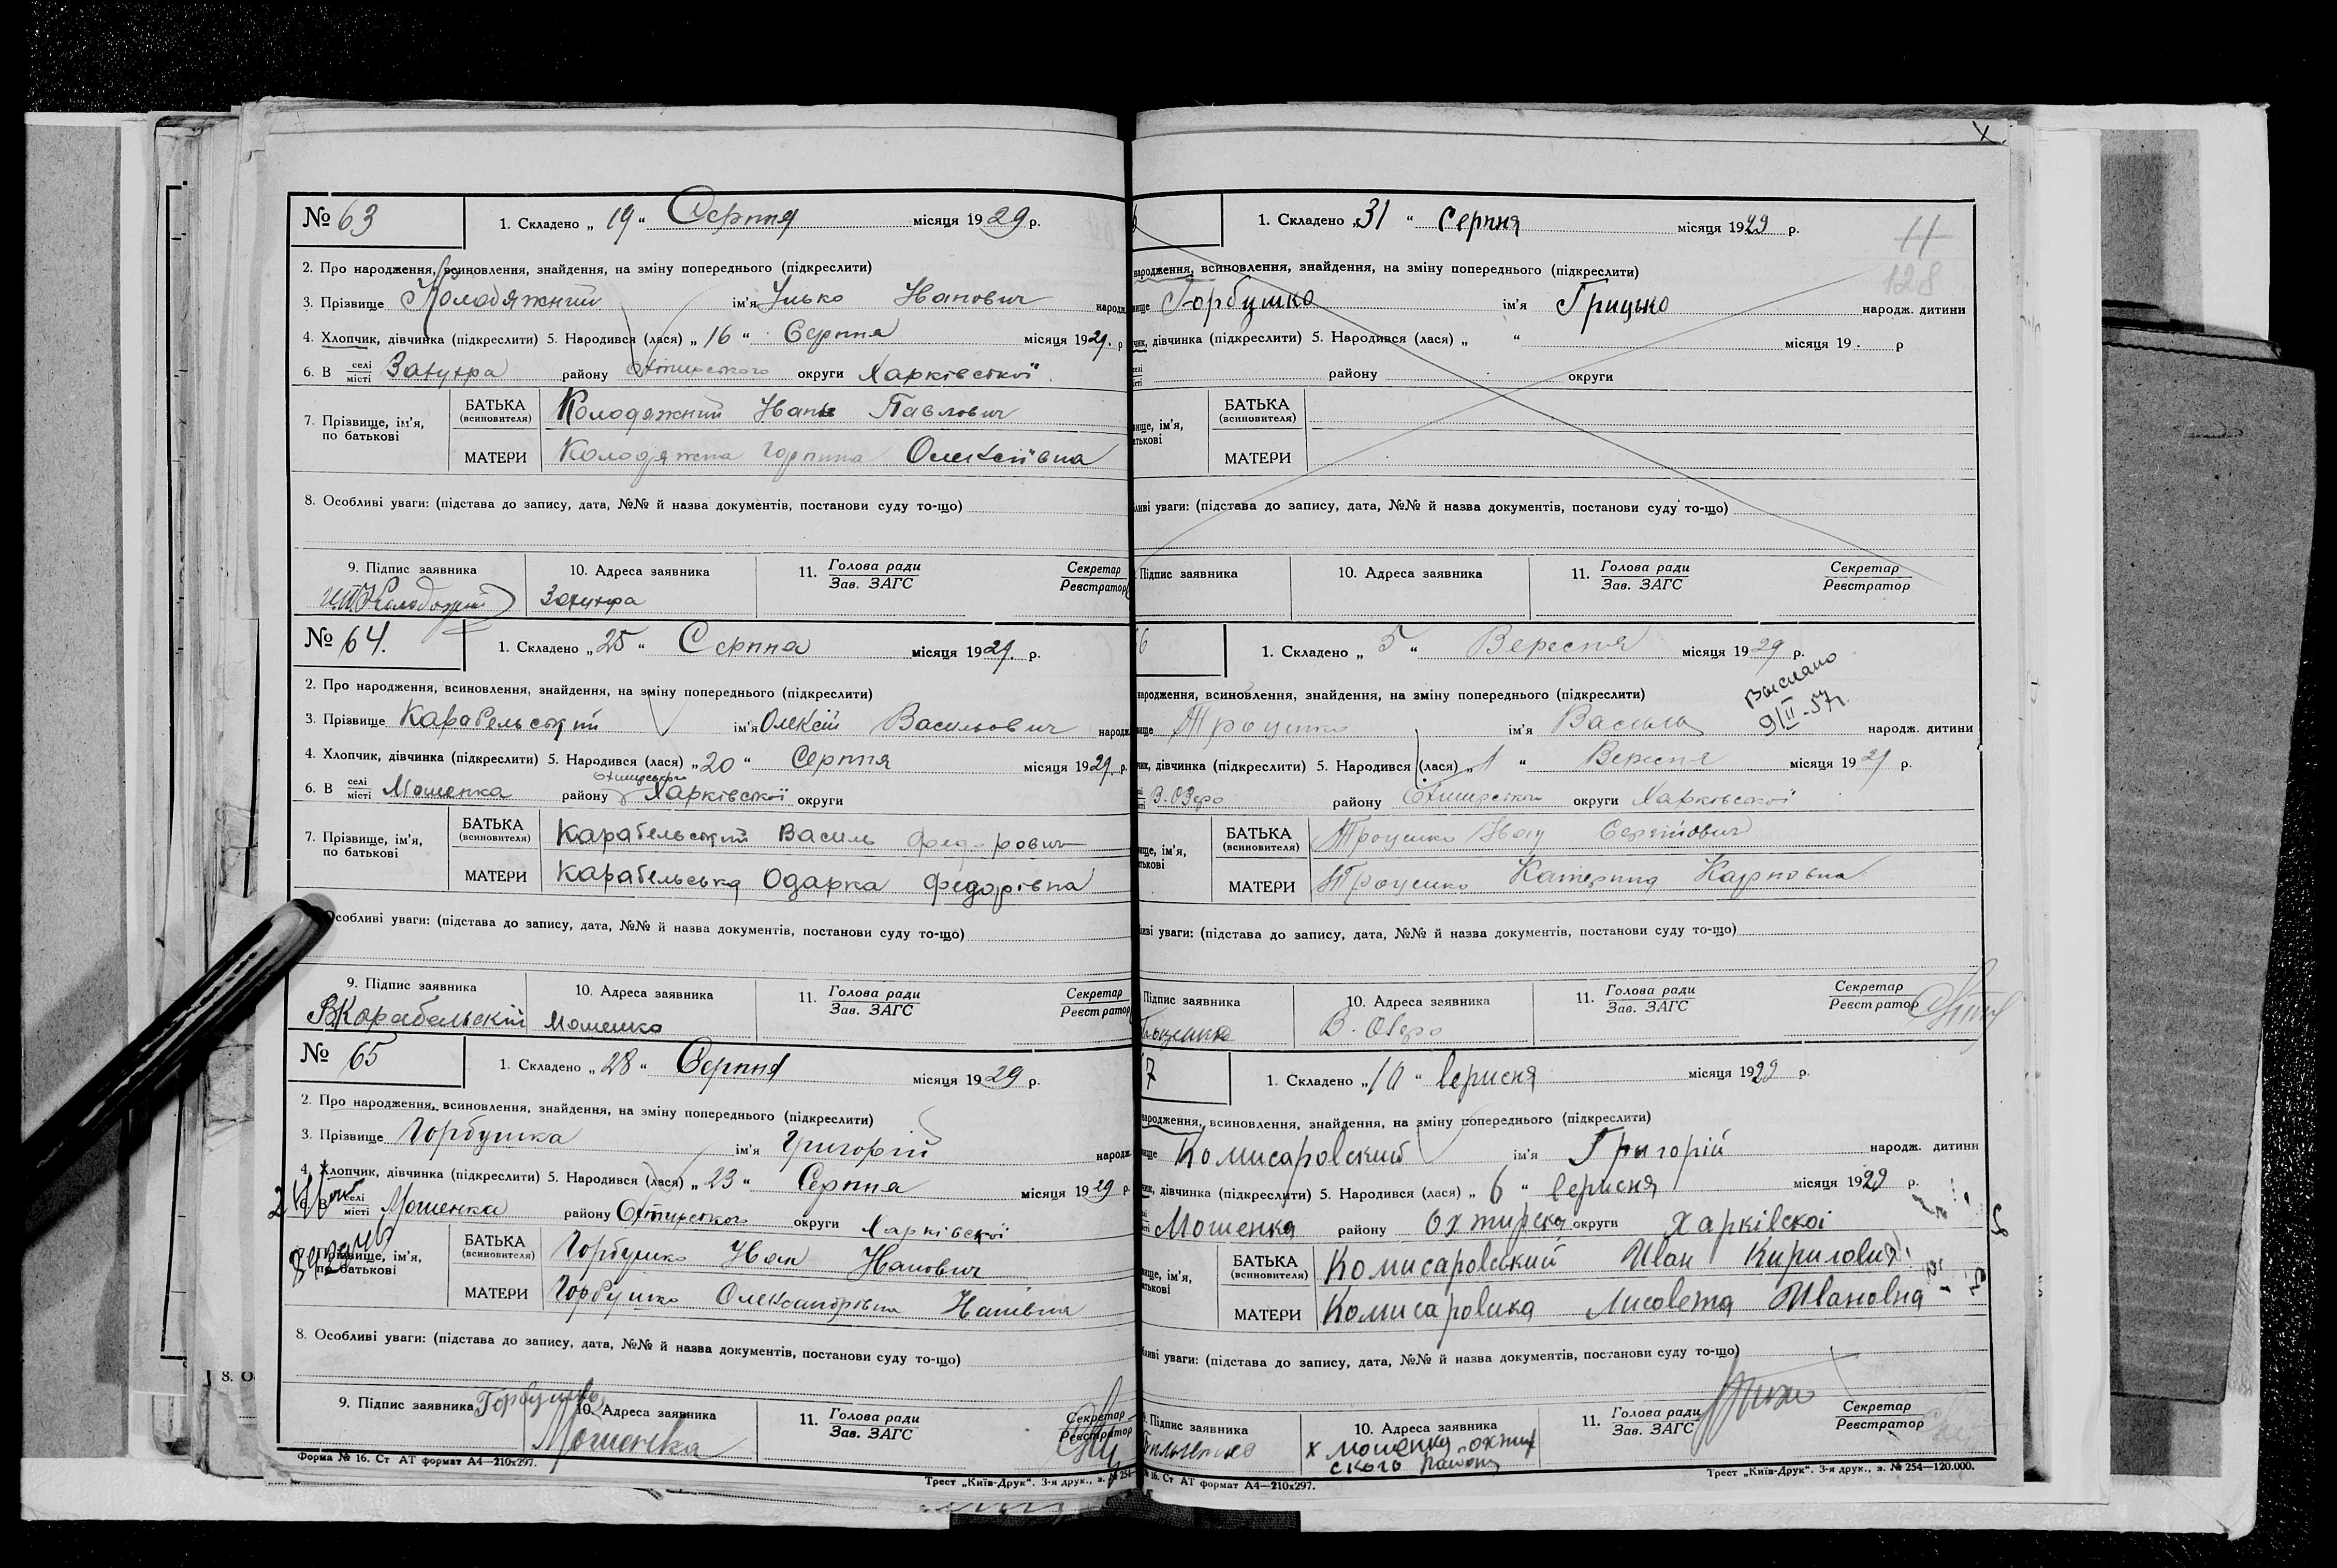 № 63
1. Складено „ 19 “ Серпня місяця 1929 р.
2. Про народження, всиновлення, знайдення, на зміну попереднього (підкреслити)
3. Прізвище Колодяжний ім'я Ілько Іванович народж.
4. Хлопчик, дівчинка (підкреслити) 5. Народився (лася) „ 16 “ Серпня місяця 1929. р
6. В селі/місті району Охтирського округи Харківської
7. Прізвище, ім'я, по батькові
БАТЬКА (всиновителя) Колодяжний Іван Павлович
МАТЕРИ Колодяжна Горпина Олексіївна
8. Особливі уваги: (підстава до запису, дата, №№ й назва документів, постанови суду то-що)
9. Підпис заявника 10. Адреса заявника 11. Голова ради / Зав. ЗАГС Секретар / Реєстратор
№ 64.
1. Складено „ 25 “ Серпня місяця 1929. р.
2. Про народження, всиновлення, знайдення, на зміну попереднього (підкреслити)
3. Прізвище Карабельський ім'я Олексій Васильович народж.
4. Хлопчик, дівчинка (підкреслити) 5. Народився (лася) „ 20 “ Серпня місяця 1929. р.
6. В селі/місті Мошенка району Охтирського Харківської округи
7. Прізвище, ім'я, по батькові
БАТЬКА (всиновителя) Карабельський Василь Федорович
МАТЕРИ Карабельська Одарка Федорівна
Особливі уваги: (підстава до запису, дата, №№ й назва документів, постанови суду то-що)
9. Підпис заявника 10. Адреса заявника 11. Голова ради / Зав. ЗАГС Секретар / Реєстратор
В.Карабельский Мошенка
№ 65
1. Складено „ 28 “ Серпня місяця 1929 р.
2. Про народження, всиновлення, знайдення, на зміну попереднього (підкреслити)
3. Прізвище Горбушка ім'я Григорій народж.
4. Хлопчик, дівчинка (підкреслити) 5. Народився (лася) „ 23 “ Серпня місяця 1929 р
селі/місті Мошенка району Охтирського округи Харківської
Прізвище, ім'я, по батькові
БАТЬКА (всиновителя) Горбушко Іван Іванович
МАТЕРИ Горбушко Олександрівна
8. Особливі уваги: (підстава до запису, дата, №№ й назва документів, постанови суду то-що)
9. Підпис заявника 10. Адреса заявника 11. Голова ради / Зав. ЗАГС Секретар / Реєстратор
Мошенка
Форма № 16. Ст АТ формат А4—210х297.
Трест „Київ-Друк“. 3-я друк., з. № 254
1. Складено „ 31 “ Серпня місяця 1929 р.
128
народження, всиновлення, знайдення, на зміну попереднього (підкреслити)
Горбушко ім'я Грицько народж. дитини
дівчинка (підкреслити) 5. Народився (лася) „ “ місяця 19 . р
району округи
БАТЬКА (всиновителя)
МАТЕРИ
уваги: (підстава до запису, дата, №№ й назва документів, постанови суду то-що)
Підпис заявника 10. Адреса заявника 11. Голова ради / Зав. ЗАГС Секретар / Реєстратор
6
1. Складено „ 5 “ Вересня місяця 1929 р.
Выслано
9/II-57г.
народження, всиновлення, знайдення, на зміну попереднього (підкреслити)
Троценко ім'я Василь народж. дитини
дівчинка (підкреслити) 5. Народився (лася) „ 1 “ Вересня місяця 1929 р.
В.Озеро району Охтирського округи Харківської
БАТЬКА (всиновителя) Троценко Іван Сергійович
МАТЕРИ Троценко Катерина Карповна
уваги: (підстава до запису, дата, №№ й назва документів, постанови суду то-що)
Підпис заявника 10. Адреса заявника 11. Голова ради / Зав. ЗАГС Секретар / Реєстратор
В. Озеро
7
1. Складено „ 10 “ Верисня місяця 1929 р.
народження, всиновлення, знайдення, на зміну попереднього (підкреслити)
Комисаровский ім'я Григорій народж. дитини
дівчинка (підкреслити) 5. Народився (лася) „ 6 “ верисня місяця 1929 р.
Мошенка району Охтирско округи Харківскої
БАТЬКА (всиновителя) Комисаровський Иван Кирилович
МАТЕРИ Комисаровска Лисовета Ивановна
уваги: (підстава до запису, дата, №№ й назва документів, постанови суду то-що)
Підпис заявника 10. Адреса заявника 11. Голова ради / Зав. ЗАГС Секретар / Реєстратор
х мошенка охтир
ского району
16. Ст АТ формат А4—210х297.
Трест „Київ-Друк“. 3-я друк., з. № 254—120.000.